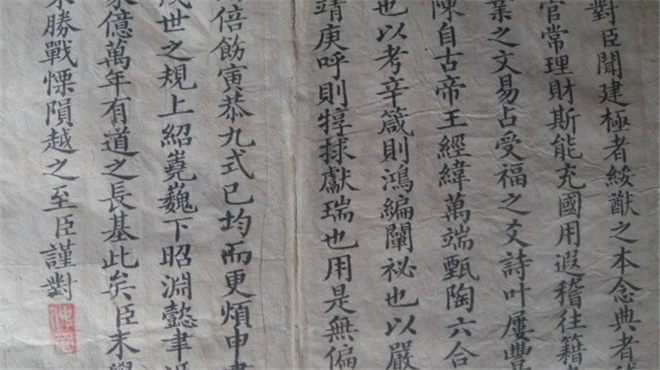 對臣聞建極者綏猷之本念典者
官常理財斯能充國用遐稽往籍
業之文易占受福之爻詩叶屢豐
陳自古帝王經緯萬端甄陶六合
也以考辛箴則鴻編闡祕也以嚴
靖庚呼則犉捄獻瑞也用是無偏
倍飭寅恭九式已均而更煩申
世之規上紹嶤巍下昭淵懿聿
億萬年有道之長基此矣臣末學
勝戰慄隕越之至臣謹對